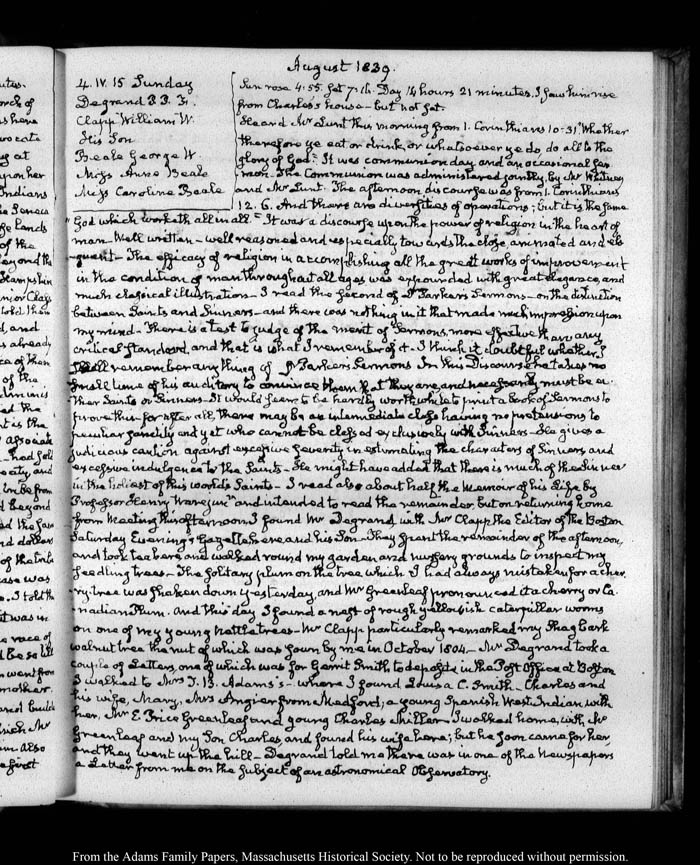 August 1839.
4. IV. 15 Sunday
Degrand P.P.F.
Clapp William W.
His Son
Beale George W.
Miss Anne Beale
Miss Caroline Beale
Sun rose 4:55. Set 7:5. Day 14 hours 21 minutes. I saw him rise
from Charles's house - but not set.
Heard Mr Lunt this morning from 1. Corinthians 10. 31. Whether
therefore ye eat or drink, or whatsoever ye do, do all to the
glory of God. It was communion day, and an occasional Ser-
mon. The Communion was administered jointly by Mr Whitney
and Mr Lunt. The afternoon discourse was from 1. Corinthians
12. 6. And there are diversities of operations; but it is the same
God which worketh all in all. It was a discourse upon the power of religion in the heart of
man. Well written - well reasoned and especially towards the close, animated and elo-
quent - The efficacy of religion in accomplishing all the great works of improvement
in the condition of man throughout all ages was expounded with great elegance, and
much classical illustration - I read the second of Parker's Sermons - on the distinction
between Saints and Sinners - and there was nothing in it that made much impression upon
my mind - There is a test to judge of the merit of Sermons, more effective than any
critical standard, and that is what I remember of it - I think it doubtful whether I
shall remember any thing of Parker's Sermons In this Discourse he takes no
small time of his auditory to convince them that they are, and necessarily must be ei-
ther Saints or Sinners - It would seem to be hardly worth while to print a book of Sermons to
prove this for after all, there may be an intermediate class having no pretensions to
peculiar sanctity and yet who cannot be classed exclusively with Sinners - He gives a
judicious caution against excessive severity in estimating the characters of Sinners, and
excessive indulgence to the Saints - He might have added that there is much of the Sinner
in the holiest of this world's Saints - I read also about half the Memoir of his Life by
Professor Henry Ware junr and intended to read the remainder, but on returning home
from Meeting this afternoon I found Mr Degrand, with Mr Clapp the Editor of the Boston
Saturday Evening's Gazette here and his Son - They spent the remainder of the afternoon,
and took tea here and walked round my garden and nursery grounds to inspect my
seedling trees - The solitary plum on the tree which I had always mistaken for a cher-
ry tree was shaken down yesterday, and Mr Greenleaf pronounced it a cherry or Ca-
nadian Plum. And this day I found a nest of rough yellowish caterpillar worms
on one of my young nettle trees - Mr Clapp particularly remarked my Shagbark
walnut tree the nut of which was sown by me in October 1804 - Mr Degrand took a
couple of Letters, one of which was for Gerrit Smith to deposite in the Post Office at Boston
I walked to Mrs T. B. Adams's - where I found Louisa C. Smith - Charles and
his wife, Mary, Mrs Angier from Medford; a young Spanish West Indian with
her, Mr E. Price Greenleaf and young Charles Miller. I walked home with Mr
Greenleaf and my Son Charles and found his wife here; but he soon came for her
and they went up the hill - Degrand told me there was in one of the Newspapers
a Letter from me on the subject of an astronomical Observatory.
From the Adams Family Papers, Massachusetts Historical Society. Not to be reproduced without permission.